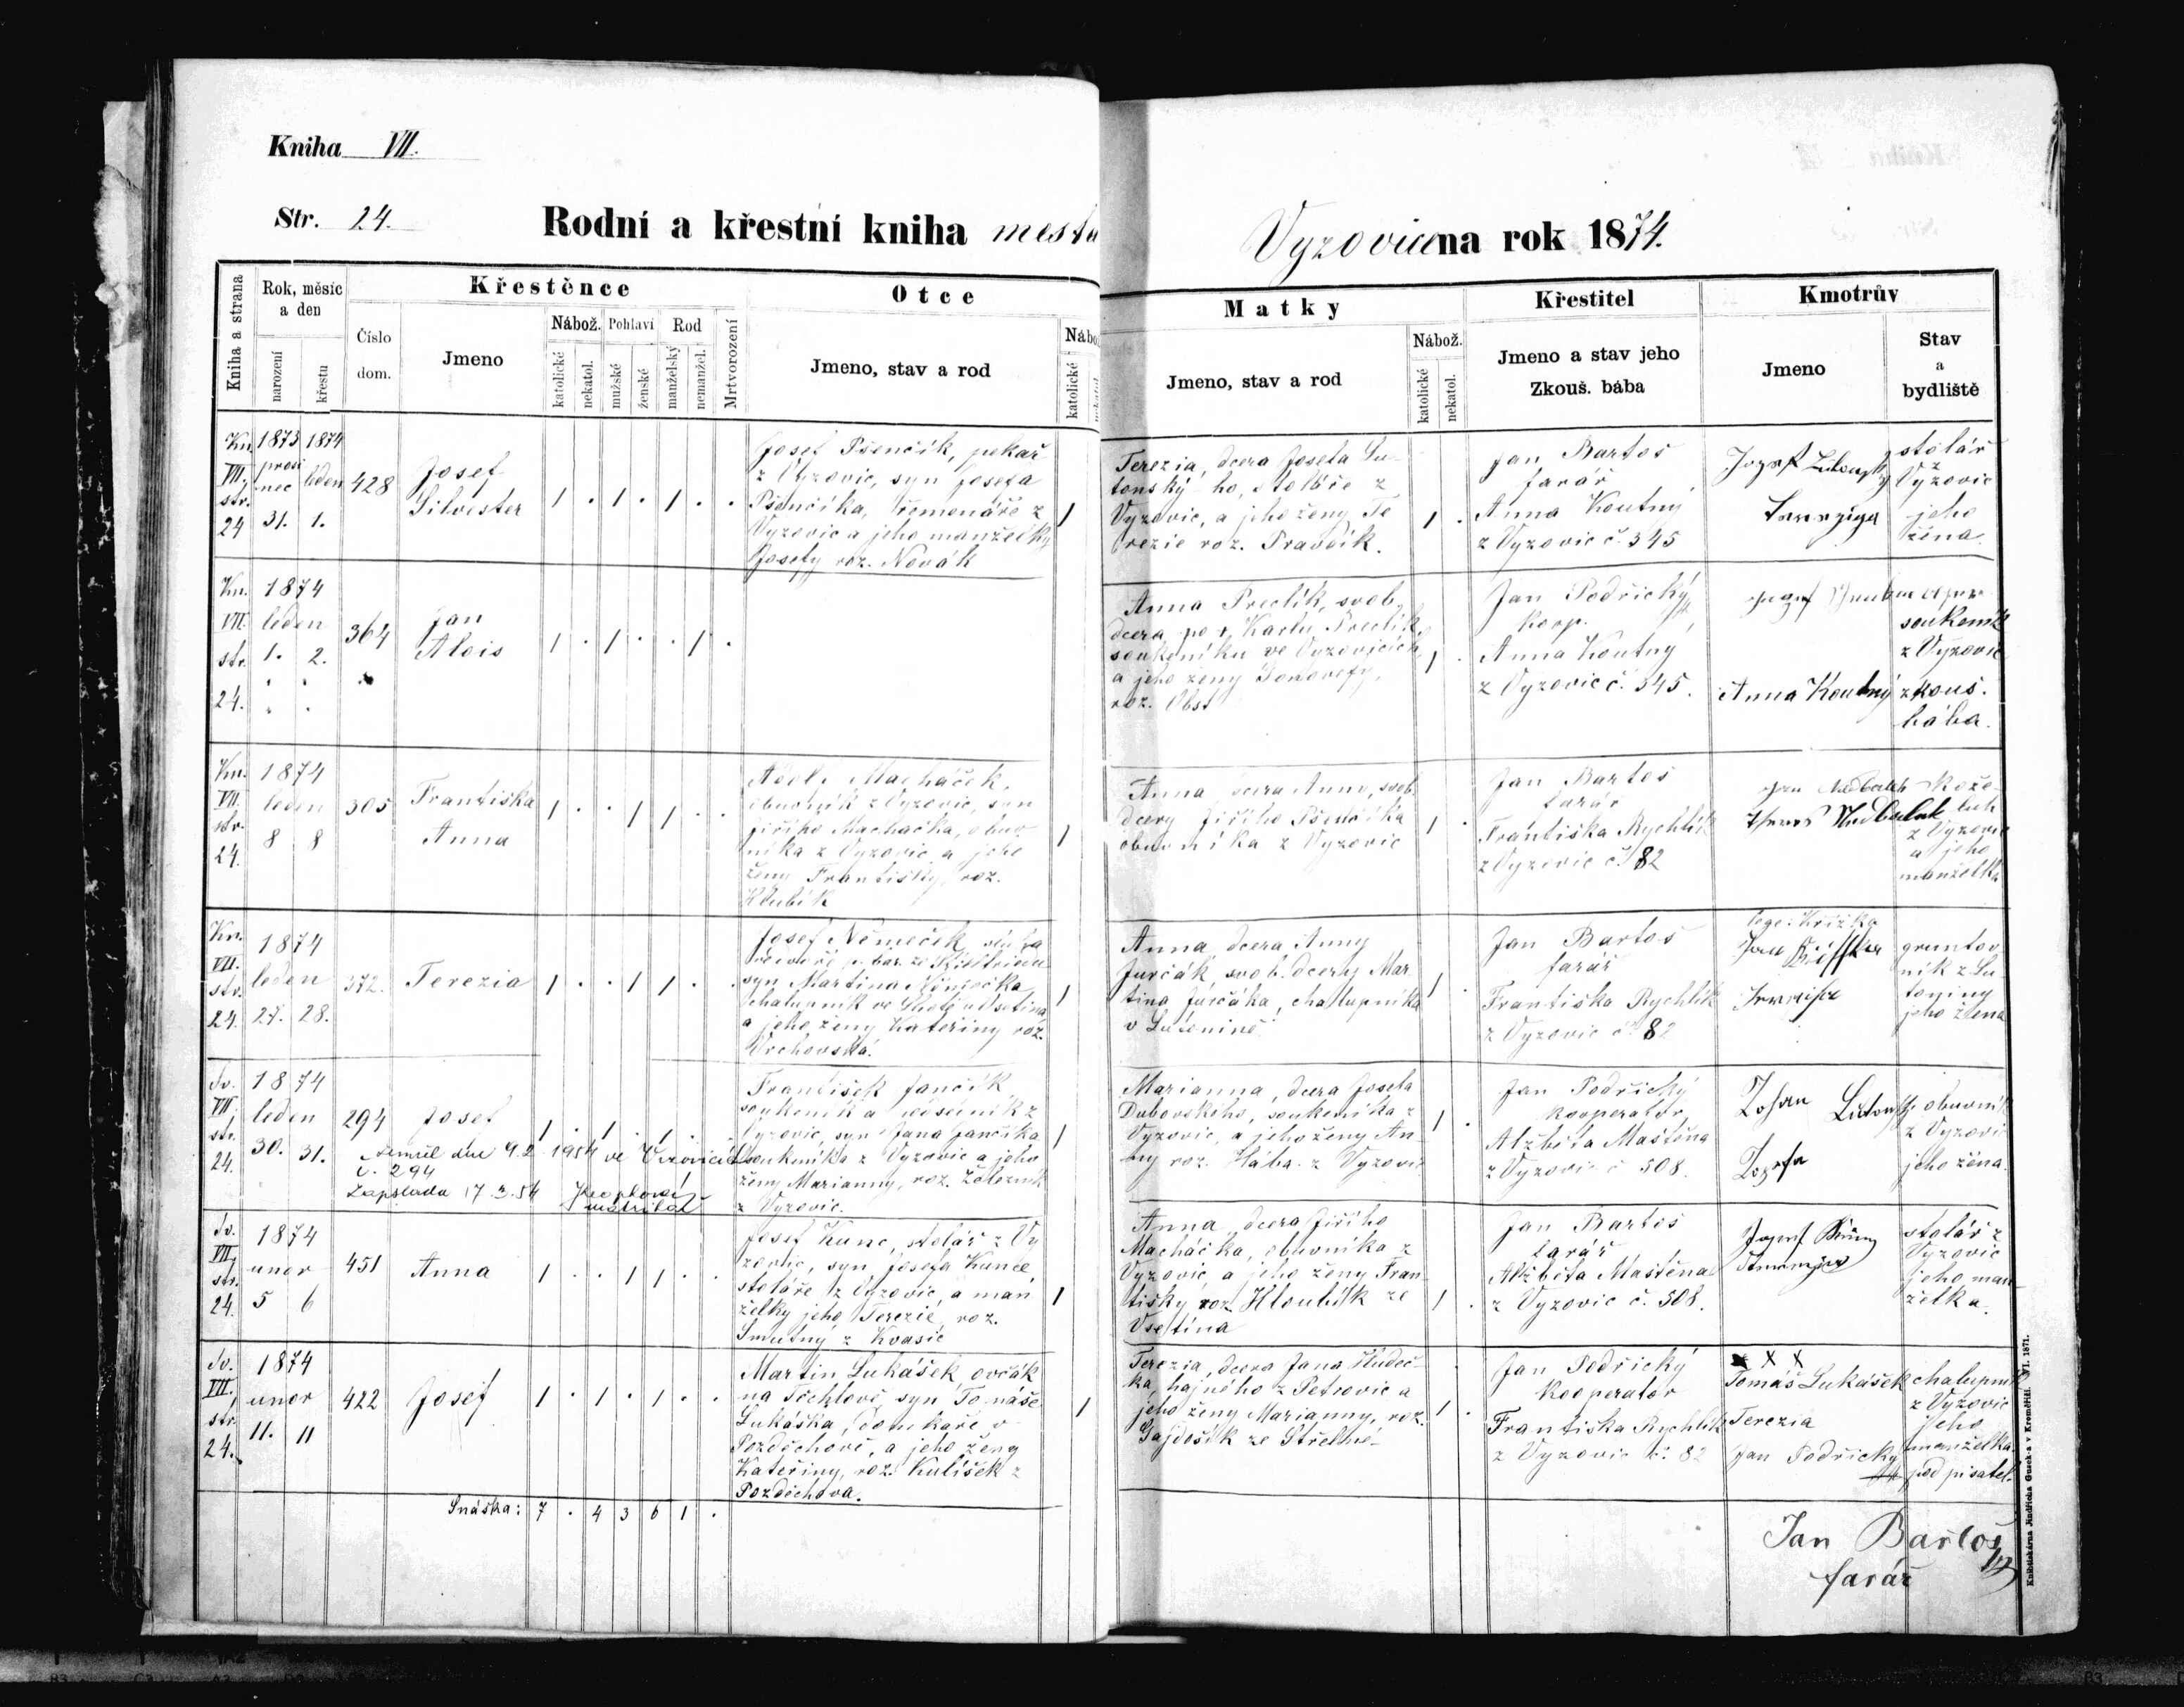 Kniha VII.
Str. 24.
Rodní a křestní kniha mesta
Vyzovice na rok 1874.
Kniha a strana
Rok, měsíc a den
narození
křestu
Křestěnce
Číslo dom.
Jmeno
Nábož.
katolické
nekatol.
Pohlaví
mužské
ženské
Rod
manželský
nemanžel.
Mrtvorození
Otce
Jmeno, stav a rod
Nábo
katolické
Matky
Jmeno, stav a rod
Nábož.
katolické
nekatol.
Křestitel
Jmeno a stav jeho
Zkouš. bába
Kmotrův
Jmeno
Stav
a
bydliště
Kn. VII. str. 24
1873 prosinec 31.
1874 leden 1.
428
Josef
Silvester
1 . 1 . 1 . .
Josef Pšenčík, pekař
z Vyzovic, syn Josefa
Pšenčíka, řemenáře z
Vyzovic a jeho manželky
Josefy roz. Novák
1
Terezia, dcera Josefa Lu-
tonský ho, stolóře z
Vyzovic, a jeho ženy Te
rezie roz. Pravdík.
1 .
Jan Bartos
farář
Anna Koutný
z Vyzovic č. 345
Josef
stolář
z
Vyzovic
jeho
žena.
Kn. VII. str. 24.
1874
leden
1. 2.
364
Jan
Alois
1 . 1 . . 1 .
Anna Preclík, svob.
dcera po † Karlu Preclík,
soukeníku ve Vyzovicích,
a jeho ženy
roz. Obst
1 .
Jan Podřický
koop.
Anna Koutný
z Vyzovic č. 345.
Anna Koutný
soukeník
z Vyzovic
zkouš.
bába.
Kn. VII. str. 24.
1874
leden
8 8
305
Františka
Anna
1 . . 1 1 . .
Adolf Macháček,
obuvník z Vyzovic, syn
Jiřího Macháčka, obuv-
níka z Vyzovic a jeho
ženy Františky, roz.
Hlubík
1
Anna dcera Anny, svob.
dcery Jiřího Pšenčíka
obuvníka z Vyzovic
1 .
Jan Bartos
farář
Františka Rychlík
z Vyzovic č. 82
Jan Nedbalek
Nedbalek
kože-
luh
z Vyzovic
a jeho
manželka
Kn. VII. str. 24.
1874
leden
27. 28.
372.
Terezia
1 . . 1 1 . .
Josef Němeček
syn Martina Němečka
chalupník ve Lhotě u Vsetína
a jeho ženy Kateřiny roz.
Vrchovská.
1
Anna, dcera Anny
Jurčák svob. dcery Mar
tina Jurčáka, chalupníka
v Lutonině
1 .
Jan Bartos
farář
Františka Rychlík
z Vyzovic č. 82
lege: Křižka
gruntov
ník z Lu
toniny
jeho žena
Sv. VII. str. 24.
1874
leden
30. 31.
294
Josef
1 . 1 . 1 . .
Zemřel dne 9.2. 1954 ve Vizovicích
č. 294
Zapsáno 17.3.54
František Jančík
soukeník a z
Vyzovic, syn Jana Jančíka
soukeníka z Vyzovic a jeho
ženy Marianny, roz. Železník
z Vyzovic.
1
Marianna, dcera Josefa
Dubovského, soukeníka z
Vyzovic, a jeho ženy An-
ny roz. Hába z Vyzovic
1 .
Jan Podřický
kooperator
Alžběta Maštěna
z Vyzovic č 508.
Johan
obuvník
z Vyzovic
jeho žena.
Sv. VII. str. 24.
1874
unor
5 6
451
Anna
1 . . 1 1 . .
Josef Kunc, stolář z Vy
zovic, syn Josefa Kunce
stoláře z Vyzovic, a man
želky jeho Terezie, roz.
Smutný z Kvasic
1
Anna, dcera Jiřího
Macháčka, obuvníka z
Vyzovic, a jeho ženy Fran-
tišky roz. Hloubík ze
Vsetína
1 .
Jan Bartos
farář
Alžběta Maštěna
z Vyzovic č. 508.
Josef
stolář z
Vyzovic
jeho man
želka.
Sv. VII. str. 24.
1874
unor
11. 11
422
Josef
1 . 1 . 1 . .
Martin Lukášek ovčák
na Těchlově, syn Tomáše
Lukáška, domkaře v
Pozděchově, a jeho ženy
Kateřiny, roz. Kulíšek z
Pozděchova.
1
Terezia, dcera Jana Hudeč-
ka, hajného z Petrovic a
jeho ženy Marianny, roz.
Gajdošík ze Střelné
1 .
Jan Podřický
Kooperator
Františka Rychlík
z Vyzovic č. 82
x x x
Tomáš Lukášek
Terezia
Jan Podřický
chalupník
z Vyzovic
jeho
manželka.
podpisatel.
Snáška: 7 . 4 3 6 1 .
Jan Bartoš
farář
Knihtiskárna Jindřicha Gusek-a v Kroměříži. VI. 1871.